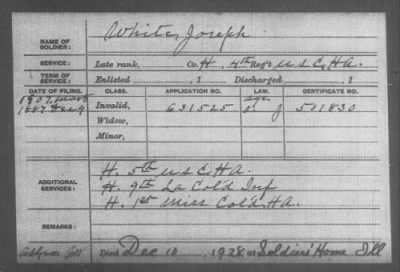 NAME OF SOLDIER: White, Joseph
SERVICE: Late rank, Co. H, 4th Reg't U S C, H A.
TERM OF SERVICE: Enlisted , 1 Discharged , 1
DATE OF FILING. CLASS. APPLICATION NO. LAW. CERTIFICATE NO.
1887 Invalid, 631525 501830
Widow,
Minor,
ADDITIONAL SERVICES:
H. 5th U S C, H A.
H. 9th La Cold Inf
H. 1st Miss Cold. H A.
REMARKS:
Died Dec 10, 1928 at Soldiers' Home Ill